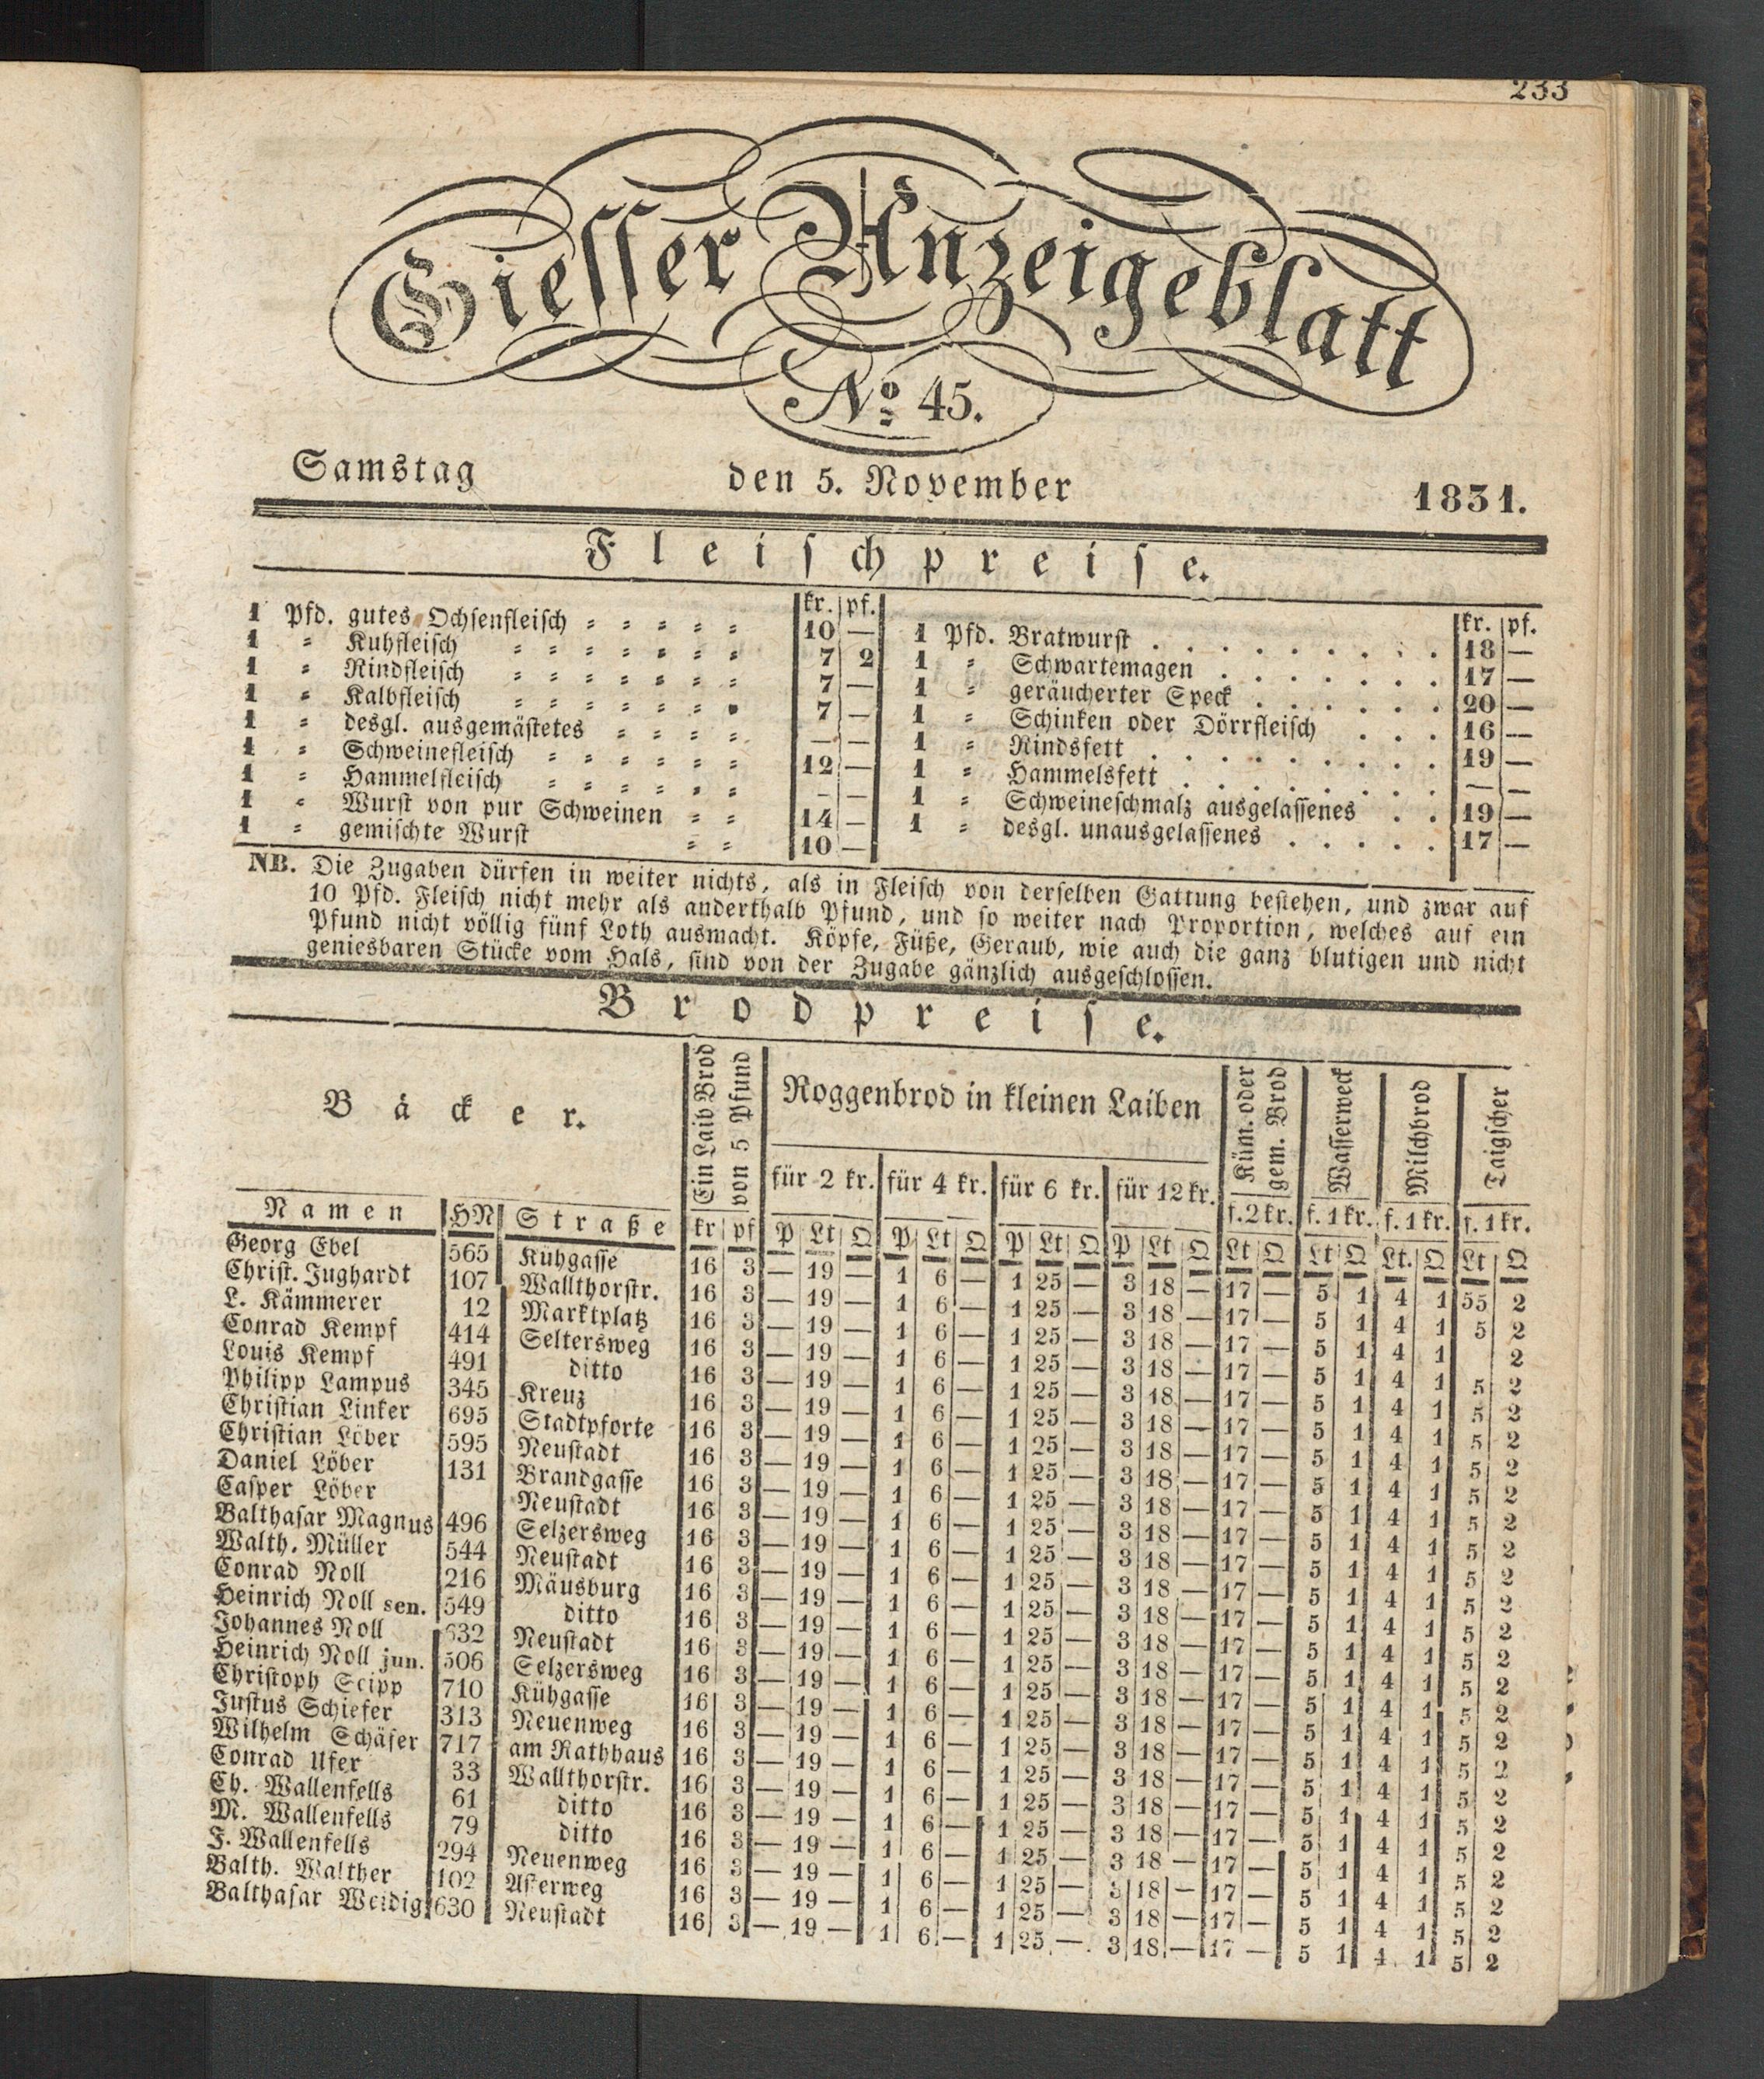 233
Giesser Anzeigeblatt
No. 45.
Samstag den 5. November 1831.
Fleischpreise.
kr. pf.
1 Pfd. gutes Ochsenfleisch = = = = = 10 —
1 = Kuhfleisch = = = = = = = 7 2
1 = Rindfleisch = = = = = = = 7 —
1 = Kalbfleisch = = = = = = = 7 —
1 = desgl. ausgemästetes = = = = — —
1 = Schweinefleisch = = = = = = 12 —
1 = Hammelfleisch = = = = = = — —
1 = Wurst von pur Schweinen = = 14 —
1 = gemischte Wurst = = 10 —
kr. pf.
1 Pfd. Bratwurst . . . . . . . . . 18 —
1 = Schwartemagen . . . . . . . 17 —
1 = geräucherter Speck . . . . . . 20 —
1 = Schinken oder Dörrfleisch . . . 16 —
1 = Rindsfett . . . . . . . . . 19 —
1 = Hammelsfett . . . . . . . . — —
1 = Schweineschmalz ausgelassenes . . 19 —
1 = desgl. unausgelassenes . . . . . 17 —
NB. Die Zugaben dürfen in weiter nichts, als in Fleisch von derselben Gattung bestehen, und zwar auf
10 Pfd. Fleisch nicht mehr als anderthalb Pfund, und so weiter nach Proportion, welches auf ein
Pfund nicht völlig fünf Loth ausmacht. Köpfe, Füße, Geraub, wie auch die ganz blutigen und nicht
geniesbaren Stücke vom Hals, sind von der Zugabe gänzlich ausgeschlossen.
Brodpreise.
Bäcker.
Ein Laib Brod
von 5 Pfund
Roggenbrod in kleinen Laiben
Küm. oder
gem. Brod
Wasserweck
Milchbrod
Taigscher
für 2 kr. für 4 kr. für 6 kr. für 12 kr.
f. 2 kr. f. 1 kr. f. 1 kr. f. 1 kr.
Namen HN Straße kr pf P Lt Q P Lt Q P Lt Q P Lt Q Lt Q Lt Q Lt. Q Lt Q
Georg Ebel 565 Kühgasse 16 3 — 19 — 1 6 — 1 25 — 3 18 — 17 — 5 1 4 1 55 2
Christ. Jughardt 107 Wallthorstr. 16 3 — 19 — 1 6 — 1 25 — 3 18 — 17 — 5 1 4 1 5 2
L. Kämmerer 12 Marktplatz 16 3 — 19 — 1 6 — 1 25 — 3 18 — 17 — 5 1 4 1 2
Conrad Kempf 414 Seltersweg 16 3 — 19 — 1 6 — 1 25 — 3 18 — 17 — 5 1 4 1 5 2
Louis Kempf 491 ditto 16 3 — 19 — 1 6 — 1 25 — 3 18 — 17 — 5 1 4 1 5 2
Philipp Lampus 345 Kreuz 16 3 — 19 — 1 6 — 1 25 — 3 18 — 17 — 5 1 4 1 5 2
Christian Linker 695 Stadtpforte 16 3 — 19 — 1 6 — 1 25 — 3 18 — 17 — 5 1 4 1 5 2
Christian Löber 595 Neustadt 16 3 — 19 — 1 6 — 1 25 — 3 18 — 17 — 5 1 4 1 5 2
Daniel Löber 131 Brandgasse 16 3 — 19 — 1 6 — 1 25 — 3 18 — 17 — 5 1 4 1 5 2
Casper Löber Neustadt 16 3 — 19 — 1 6 — 1 25 — 3 18 — 17 — 5 1 4 1 5 2
Balthasar Magnus 496 Selzersweg 16 3 — 19 — 1 6 — 1 25 — 3 18 — 17 — 5 1 4 1 5 2
Walth. Müller 544 Neustadt 16 3 — 19 — 1 6 — 1 25 — 3 18 — 17 — 5 1 4 1 5 2
Conrad Noll 216 Mäusburg 16 3 — 19 — 1 6 — 1 25 — 3 18 — 17 — 5 1 4 1 5 2
Heinrich Noll sen. 549 ditto 16 3 — 19 — 1 6 — 1 25 — 3 18 — 17 — 5 1 4 1 5 2
Johannes Noll 632 Neustadt 16 3 — 19 — 1 6 — 1 25 — 3 18 — 17 — 5 1 4 1 5 2
Heinrich Noll jun. 506 Selzersweg 16 3 — 19 — 1 6 — 1 25 — 3 18 — 17 — 5 1 4 1 5 2
Christoph Scipp 710 Kühgasse 16 3 — 19 — 1 6 — 1 25 — 3 18 — 17 — 5 1 4 1 5 2
Justus Schiefer 313 Neuenweg 16 3 — 19 — 1 6 — 1 25 — 3 18 — 17 — 5 1 4 1 5 2
Wilhelm Schäfer 717 am Rathhaus 16 3 — 19 — 1 6 — 1 25 — 3 18 — 17 — 5 1 4 1 5 2
Conrad Ufer 33 Wallthorstr. 16 3 — 19 — 1 6 — 1 25 — 3 18 — 17 — 5 1 4 1 5 2
Ch. Wallenfells 61 ditto 16 3 — 19 — 1 6 — 1 25 — 3 18 — 17 — 5 1 4 1 5 2
M. Wallenfells 79 ditto 16 3 — 19 — 1 6 — 1 25 — 3 18 — 17 — 5 1 4 1 5 2
F. Wallenfells 294 Neuenweg 16 3 — 19 — 1 6 — 1 25 — 3 18 — 17 — 5 1 4 1 5 2
Balth. Walther 102 Asterweg 16 3 — 19 — 1 6 — 1 25 — 3 18 — 17 — 5 1 4 1 5 2
Balthasar Weidig 630 Neustadt 16 3 — 19 — 1 6 — 1 25 — 3 18 — 17 — 5 1 4 1 5 2